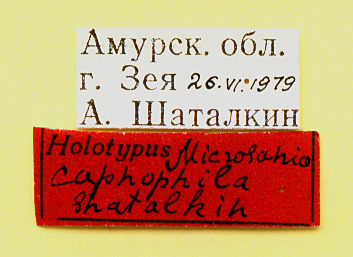 Амурск. обл.
г. Зея 26.VI.1979
А. Шаталкин
Holotypus Microsania
caphophila
Shatalkin